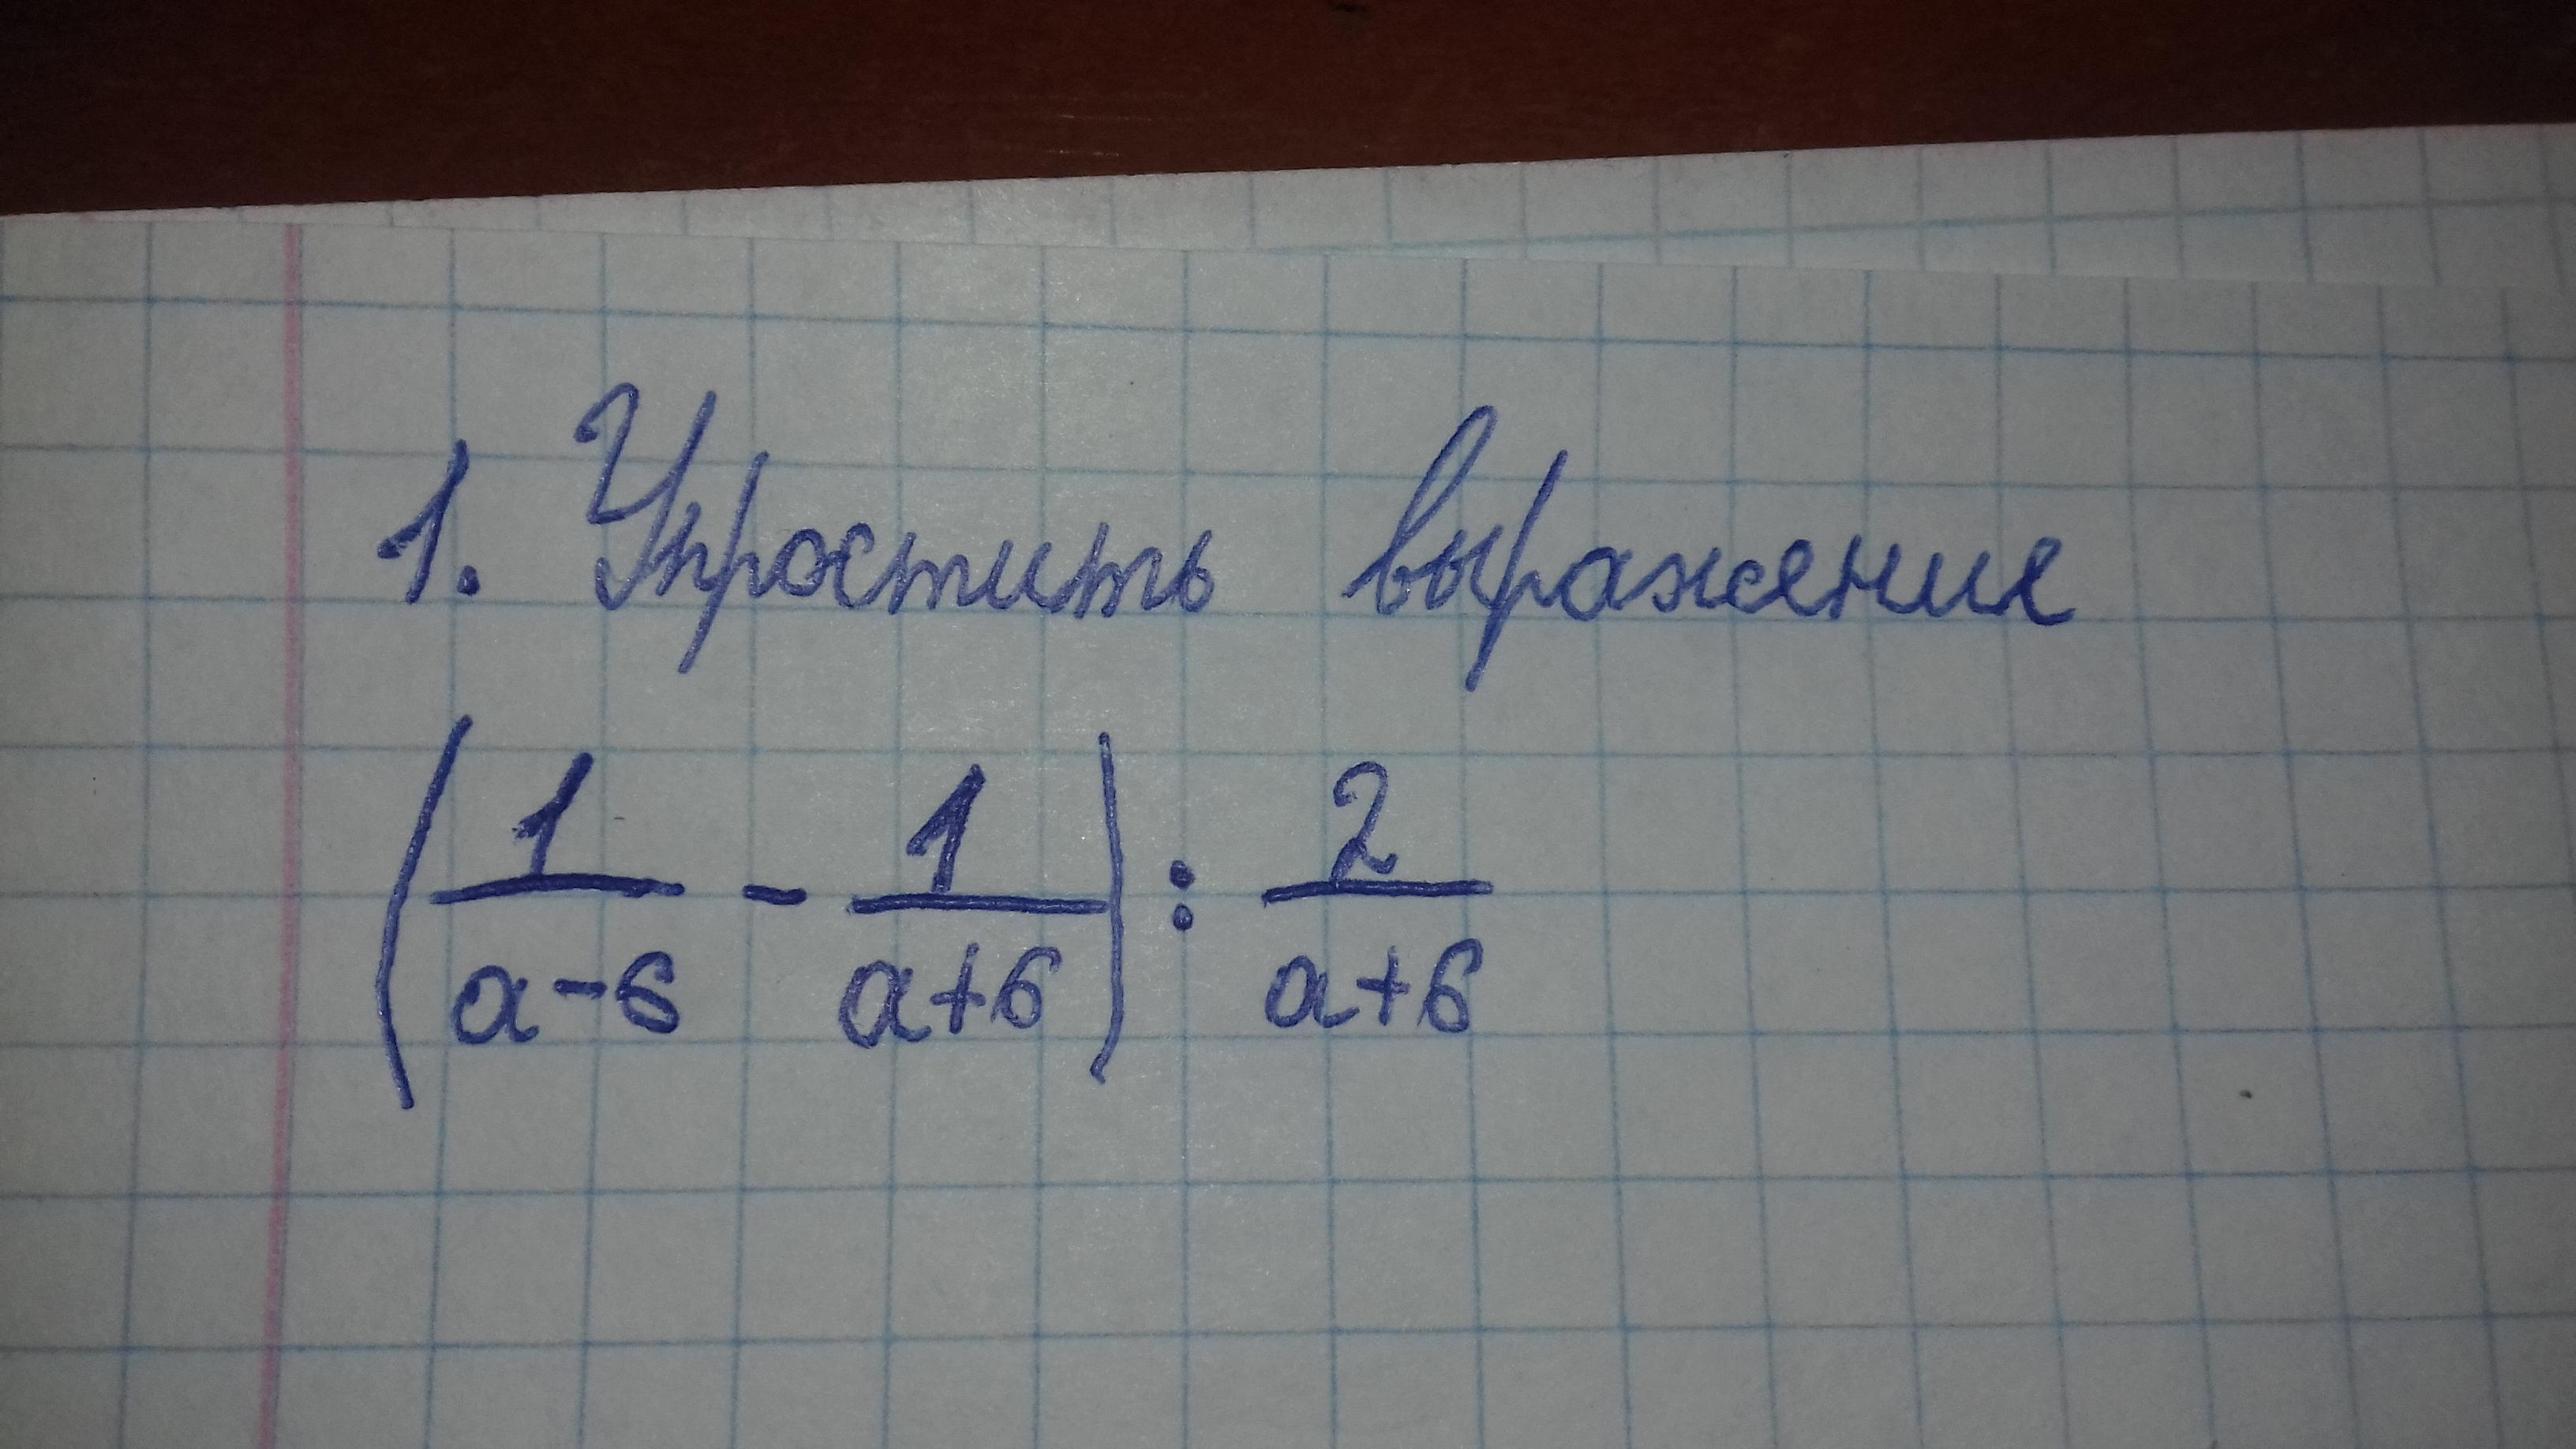 1. Упростить выражение
(1/(a-6) - 1/(a+6)) : 2/(a+6)